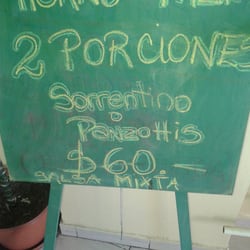 2 PORCIONE
Sorrentino
o
Panzottis
$60-
SALSA MIXTA